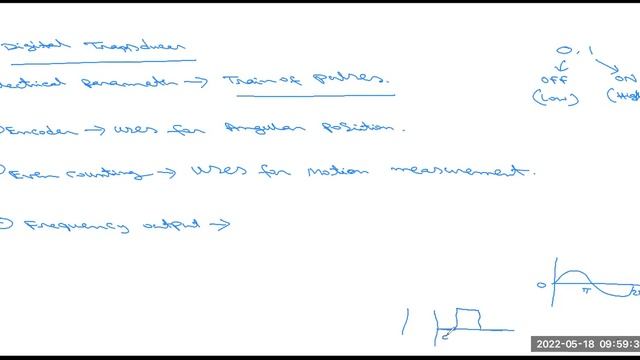 Digital Transducer
ectrical parameter → Train of pulses.
0, 1
OFF ON
(Low) (High
Encoder → uses for Angular Position.
Even counting → uses for Motion measurement.
Frequency output →
0 π 2π
2022-05-18 09:59:3